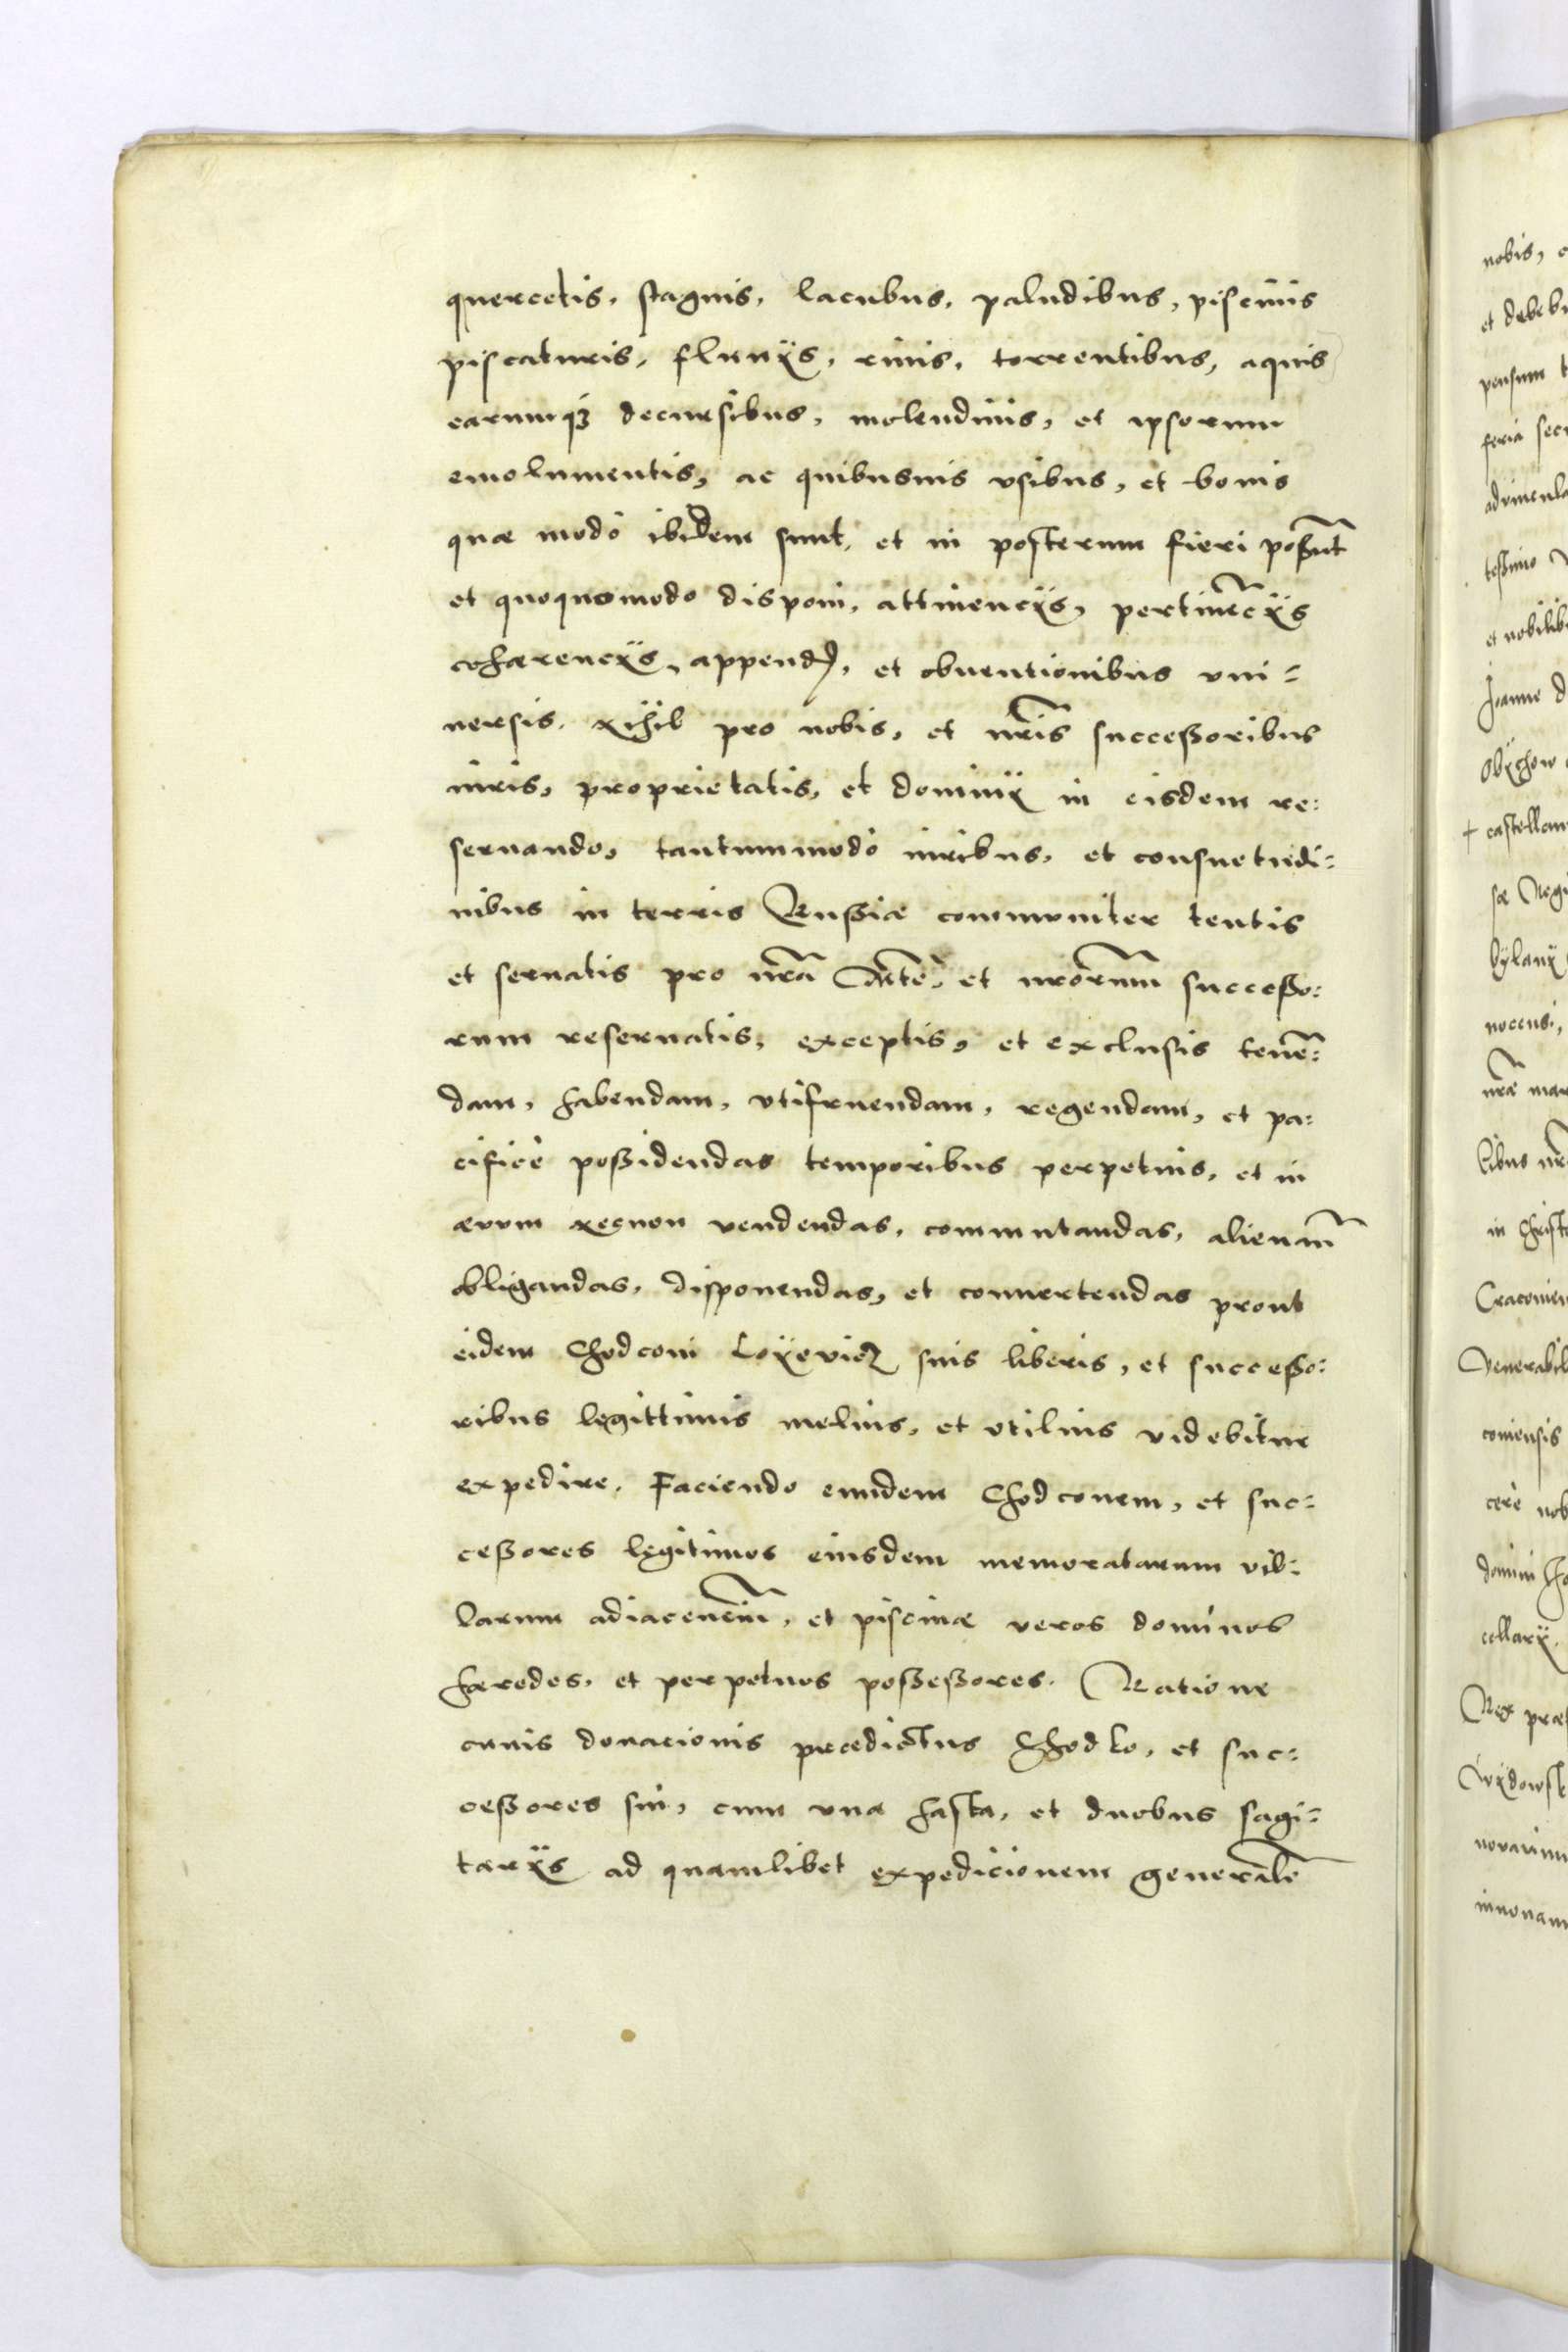 quercetis, stagnis, lacubus, paludibus, piscinis
piscaturis, fluuÿs, riuis, torrentibus, aquis
earumq3 decursibus, molendinis, et ipsorum
emolumentis, ac quibusuis vsibus, et bonis
quæ modò ibidem sunt, et in posterum fieri possūt
et quoquomodo disponi, attinencÿs, pertinēcÿs
cohærencÿs, append), et obuentionibus vni=
uersis. Nihil pro nobis, et nr̄is successoribus
iuris, proprietatis, et dominÿ in eisdem re:
seruando, tantummodò iuribus, et consuetudi:
nibus in terris Russiæ communiter tentis
et seruatis pro nr̄a Mte, et nrorum successo:
rum reseruatis, exceptis, et exclusis tenē:
dam, habendam, vtifruendam, regendam, et pa:
cificè possidendas temporibus perpetuis, et in
æuum necnon vendendas, commutandas, alienan̄
obligandas, disponendas, et conuertendas prout
eidem Chodconi Loÿevicz suis liberis, et successo:
ribus legittimis melius, et vtilius videbitur
expedire. Faciendo eundem Chodconem, et suc:
cessores legitimos eiusdem memoratarum vil:
larum adiacenciū, et piscinæ veros dominos
hæredes, et perpetuos possessores. Ratione
cuuis donacionis prædictus Chodko, et suc:
cessores sui, cum vna hasta, et duobus sagi:
tarÿs ad quamlibet expedicionem generāle
nobis, e
et debebu
pensum t
feria sec
aduincula
tessimo
et nobilib
Joanne d
Obÿchow
+ castellan
sæ Regi
bÿlanÿ
nocensi,
nr̄æ mar
libus nr
in Christ
Cracouien
Venerabil
couiensis
cerè nob
domini Ch
cellarÿ.
Rex præf
Wÿdowsk
nouarimu
innouam